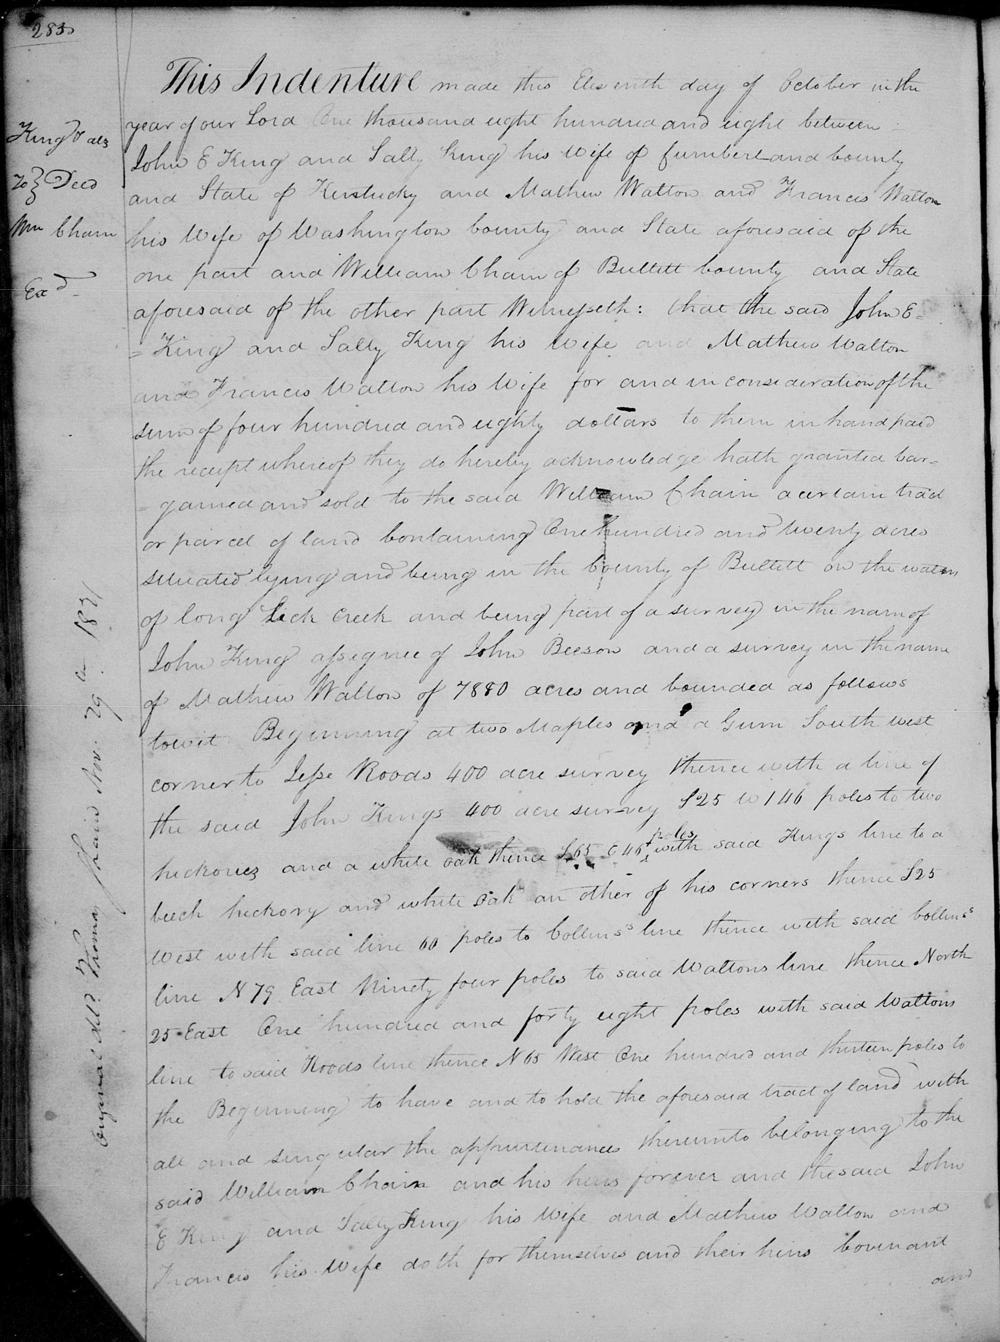 283
This Indenture made this Eleventh day of October in the
year of our Lord One thousand eight hundred and eight between
John E King and Sally King his Wife of Cumberland County
and State of Kentucky and Mathew Walton and Francis Walton
his Wife of Washington County and State aforesaid of the
one part and William Chain of Bullitt County and State
aforesaid of the other part Witnesseth: that the said John E=
= King and Sally King his Wife and Mathew Walton
and Francis Walton his Wife for and in consideration of the
sum of four hundred and eighty dollars to them in hand paid
the receipt whereof they do hereby acknowledge hath granted bar=
= gained and sold to the said William Chain a certain tract
or parcel of land Containing One hundred and twenty acres
situated lying and being in the County of Bullitt on the waters
of long Lick Creek and being part of a survey in the name of
John King assignee of John Beeson and a survey in the name
of Mathew Walton of 7880 acres and bounded as follows
towit Beginning at two Maples and a Gum South west
corner to Jesse Roods 400 acre survey thence with a line of
the said John Kings 400 acre survey S25 W 146 poles to two
hickories and a white oak thence S65 E 46 poles with said Kings line to a
beech hickory and white oak an other of his corners thence S25
West with said line 60 poles to Collins's line thence with said Collins's
line N 79 East Ninety four poles to said Waltons line thence North
25 East One hundred and forty eight poles with said Waltons
line to said Roods line thence N 65 West One hundred and thirteen poles to
the Beginning to have and to hold the aforesaid tract of land with
all and singular the appurtenances thereunto belonging to the
said William Chain and his heirs forever and the said John
E King and Sally King his Wife and Mathew Walton and
Francis his Wife doth for themselves and their heirs Covenant
and
King & als
To } Deed
Wm Chain
Exd
Original deld Thomas Chain Nov. 29th 1831